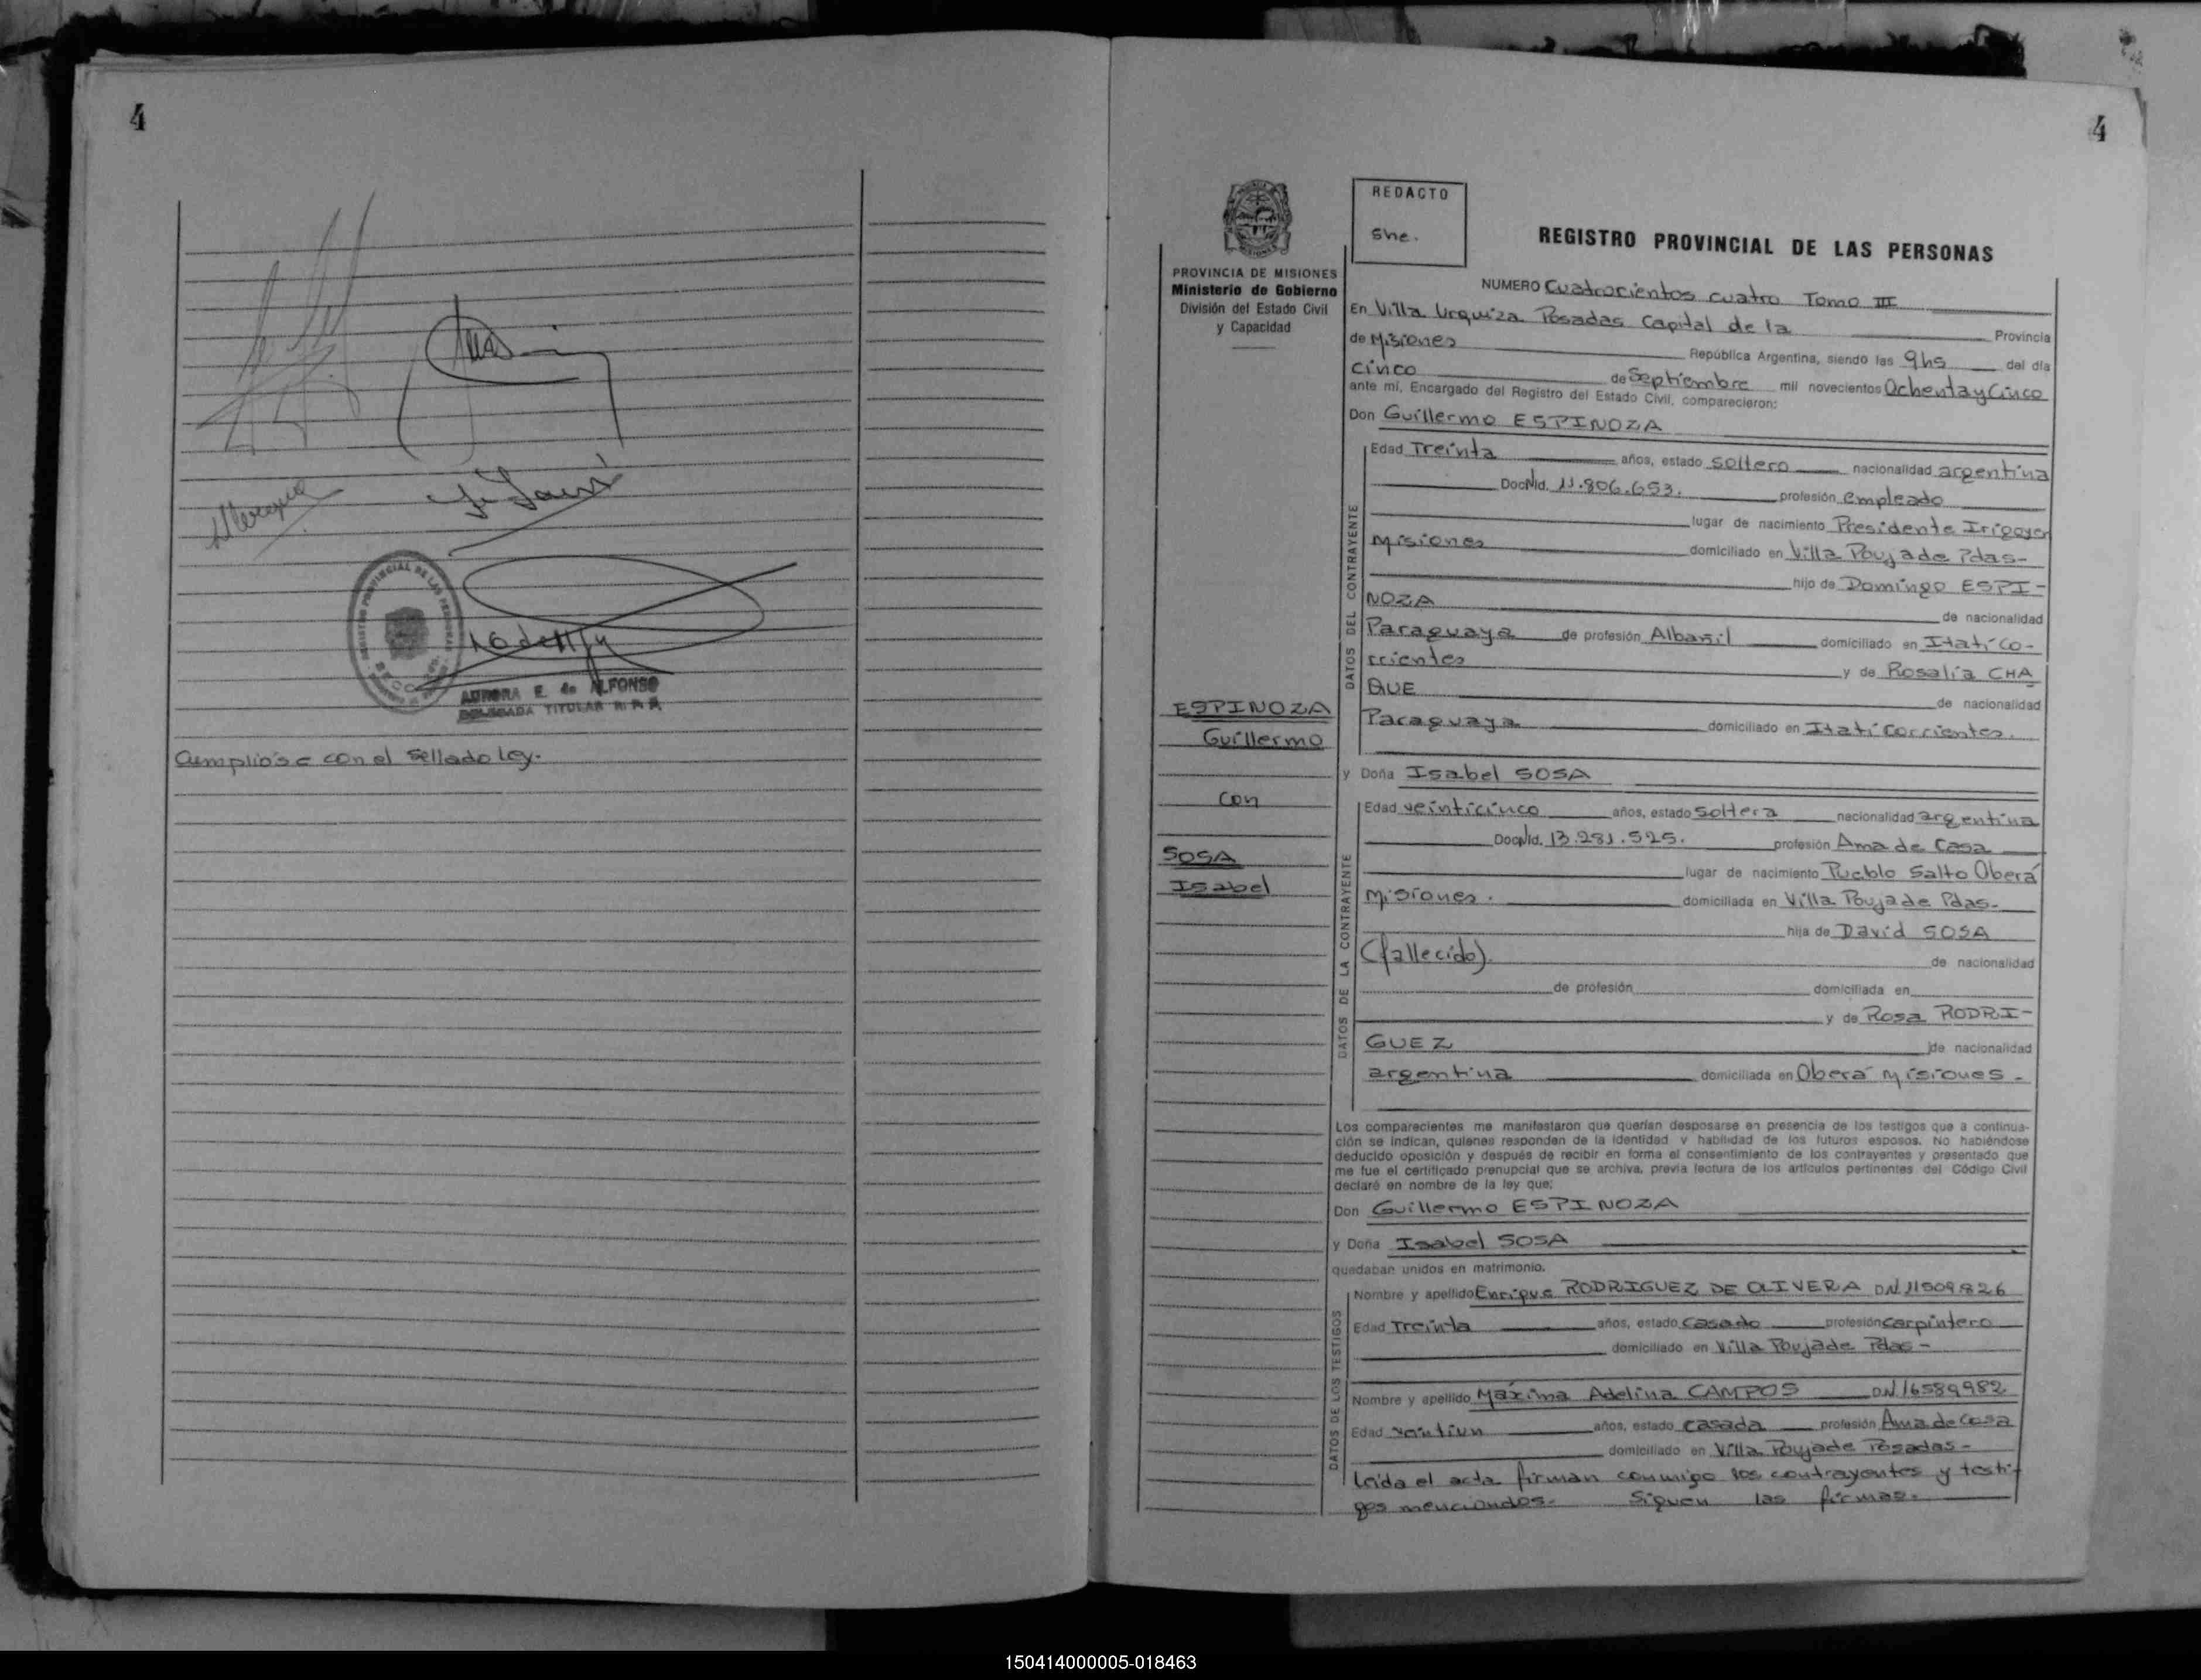 4
Cumplióse con el Sellado Ley.
AURORA E. de ALFONSO
DELEGADA TITULAR R. P. P.
4
REDACTO
She.
PROVINCIA DE MISIONES
Ministerio de Gobierno
División del Estado Civil
y Capacidad
REGISTRO PROVINCIAL DE LAS PERSONAS
NUMERO Cuatrocientos cuatro Tomo III
En Villa Urquiza Posadas Capital de la Provincia
de Misiones República Argentina, siendo las 9hs del día
cinco de Septiembre mil novecientos Ochenta y Cinco
ante mí, Encargado del Registro del Estado Civil, comparecieron:
Don Guillermo ESPINOZA
DATOS DEL CONTRAYENTE
Edad Treinta años, estado soltero nacionalidad argentina
Doc.Nid. 11.806.653. profesión empleado
lugar de nacimiento Presidente Irigoyen
Misiones domiciliado en Villa Poujade Pdas-
hijo de Domingo ESPI-
NOZA de nacionalidad
Paraguaya de profesión Albañil domiciliado en Itatí Co-
rrientes y de Rosalía CHA
QUE de nacionalidad
Paraguaya domiciliado en Itatí Corrientes.
ESPINOZA
Guillermo
con
SOSA
Isabel
y Doña Isabel SOSA
DATOS DE LA CONTRAYENTE
Edad veinticinco años, estado Soltera nacionalidad argentina
Doc.Nid. 13.281.525. profesión Ama de Casa
lugar de nacimiento Pueblo Salto Oberá
Misiones. domiciliada en Villa Poujade Pdas-
hija de David SOSA
(fallecido) de nacionalidad
de profesión domiciliada en
y de Rosa RODRI-
GUEZ de nacionalidad
argentina domiciliada en Oberá Misiones-
Los comparecientes me manifestaron que querían desposarse en presencia de los testigos que a continua-
ción se indican, quienes responden de la identidad y habilidad de los futuros esposos. No habiéndose
deducido oposición y después de recibir en forma el consentimiento de los contrayentes y presentado que
me fue el certificado prenupcial que se archiva, previa lectura de los artículos pertinentes del Código Civil
declaré en nombre de la ley que:
Don Guillermo ESPINOZA
y Doña Isabel SOSA
quedaban unidos en matrimonio.
DATOS DE LOS TESTIGOS
Nombre y apellido Enrique RODRIGUEZ DE OLIVERA DN 11509826
Edad Treinta años, estado casado profesión carpintero
domiciliado en Villa Poujade Pdas-
Nombre y apellido Máxima Adelina CAMPOS D.N. 16589982
Edad años, estado casada profesión Ama de Casa
domiciliado en Villa Poujade Posadas-
Leida el acta firman conmigo los contrayentes y testi-
gos mencionados- Siguen las firmas.
150414000005-018463